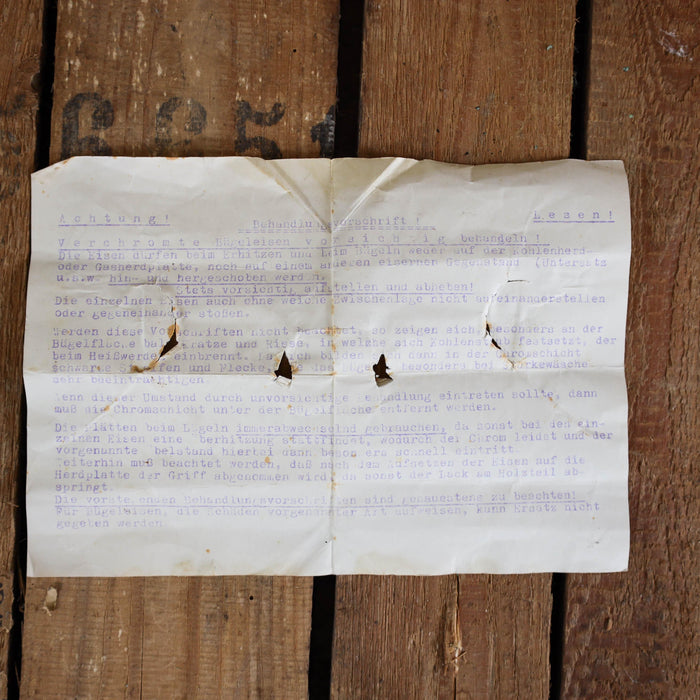 Achtung! Behandlungsvorschrift! Lezen!
Verchromte Bügeleisen vorsichtig behandeln!
Die Eisen dürfen beim Erhitzen und beim Bügeln weder auf der Kohlenherd-
oder Gasherdplatte, noch auf einem anderen eisernen Gegenstand (Untersatz
u.s.w. hin- und hergeschoben werden.
Stets vorsichtig aufstellen und abheben!
Die einzelnen Eisen auch ohne weiche Zwischenlage nicht aufeinanderstellen
oder gegeneinander stoßen.
Werden diese Vorschriften nicht beachtet, so zeigen sich besonders an der
Bügelfläche Kratze und Risse, in welche sich Kohlenstoff festsetzt, der
beim Heißwerden einbrennt. bilden dann in der Chromschicht
schwarze Streifen und Flecke, besonders bei Stärkewäsche
sehr beeinträchtigen.
Wenn dieser Umstand durch unvorsichtige Behandlung eintreten sollte, dann
muß die Chromschicht unter der Bügelfläche entfernt werden.
Die Plätten beim Bügeln immerabwechselnd gebrauchen, da sonst bei den ein-
zelnen Eizen eine berhitzung stattfindet, wodurch der Chrom leidet und der
vorgenannte belstand hierbei dann besonders schnell eintritt
Weiterhin muß beachtet werden, daß nach dem Aufsetzen der Eisen auf die
Herdplatte der Griff abgenommen wird, da sonst der Lack am Holzteil ab-
springt.
Die vorstehenden Behandlungsvorschriften sind genauestens zu beachten!
Für Bügeleisen, die Schäden vorgenannter Art aufweisen, kann Ersatz nicht
gegeben werden